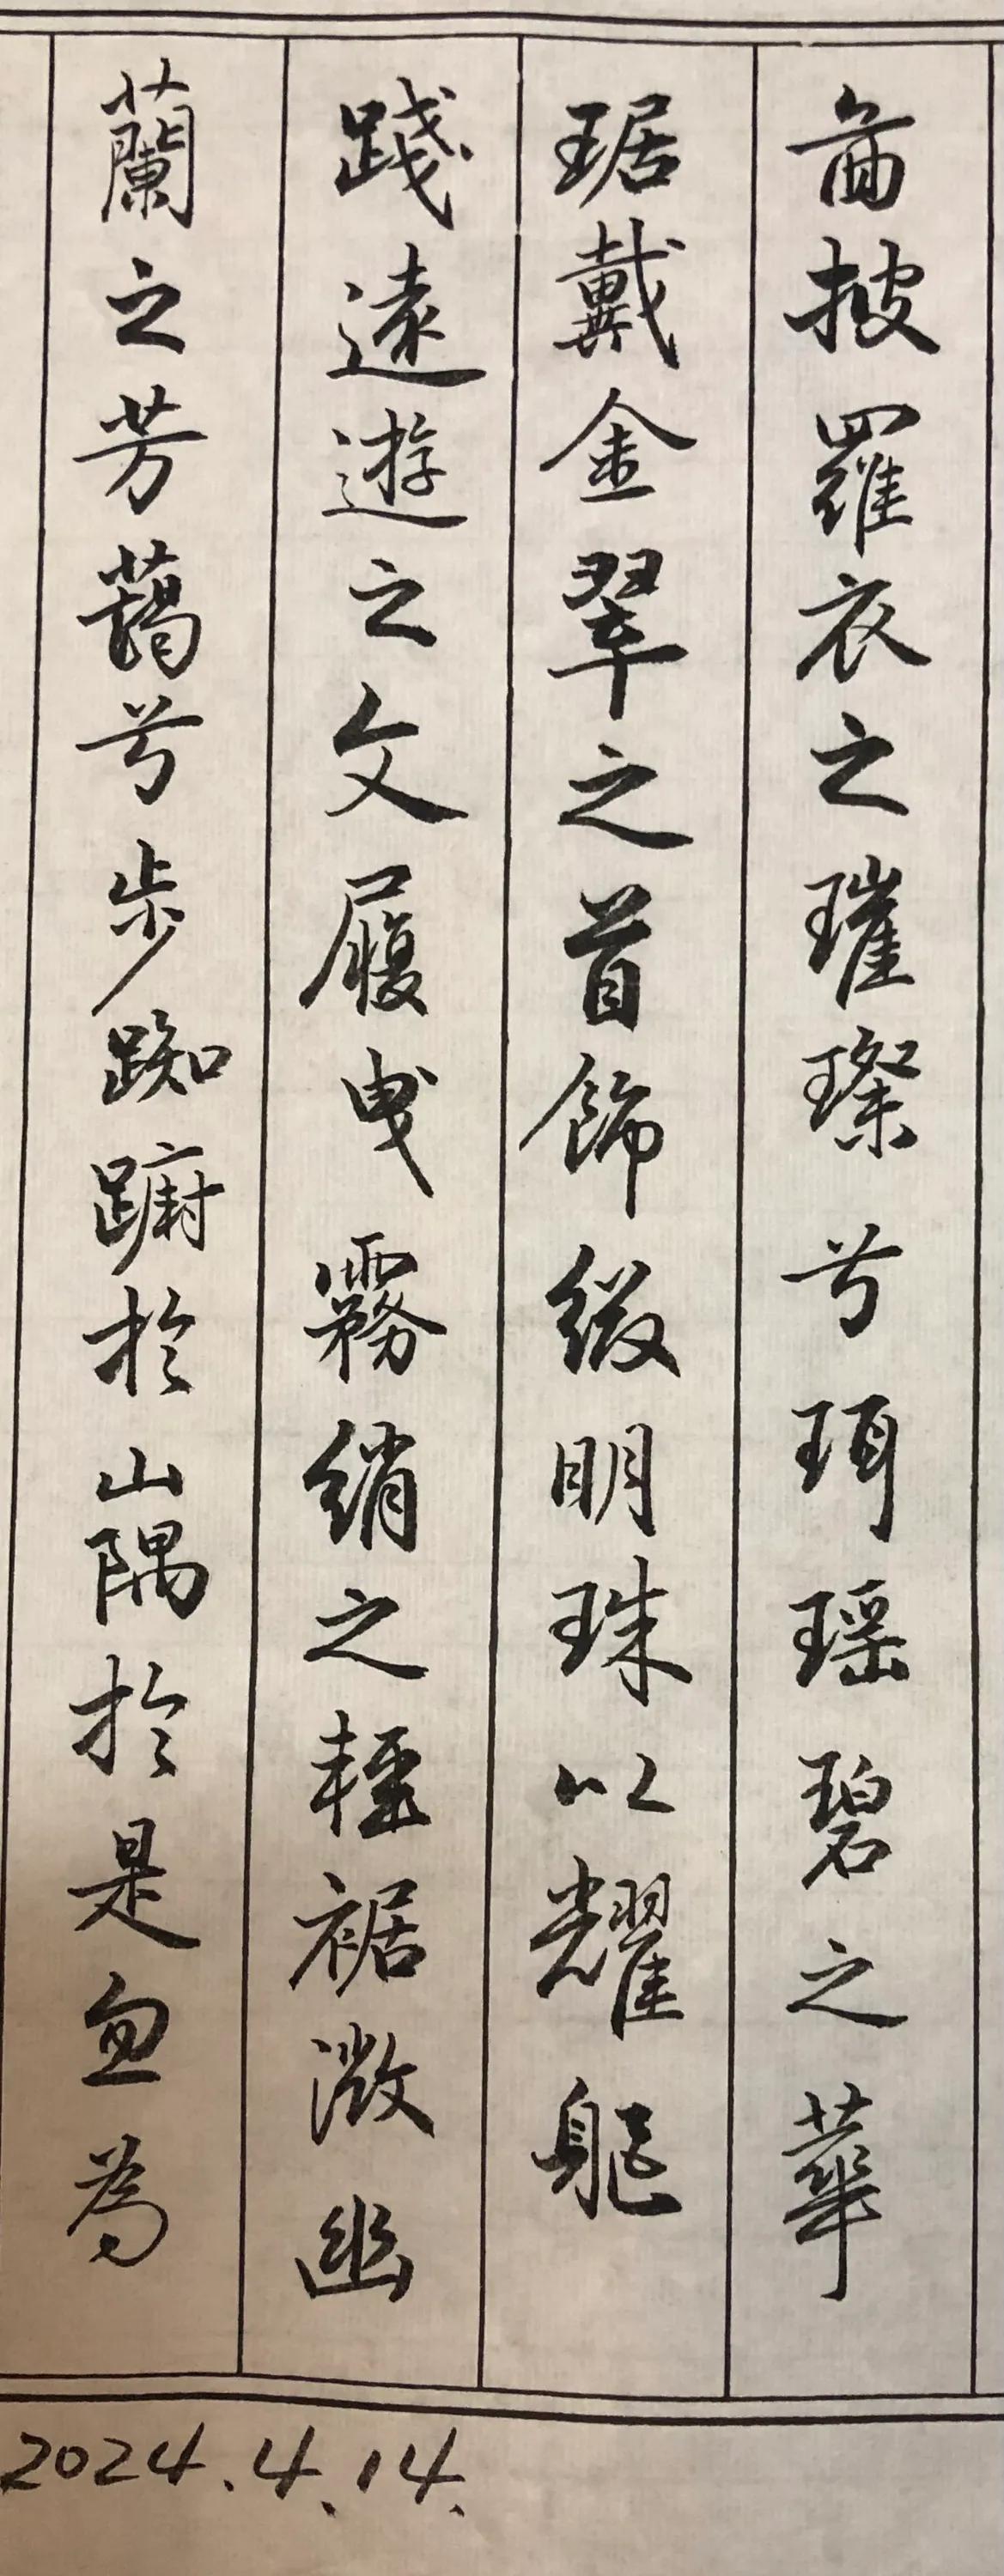 圖披羅衣之璀璨兮珥瑶碧之華
琚戴金翠之首飾綴明珠以耀軀
踐遠遊之文履曳霧綃之輕裾微幽
蘭之芳藹兮步踟躕於山隅於是忽為
2024.4.14.